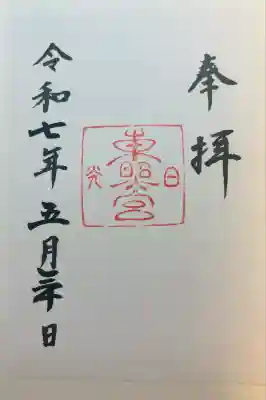 奉拝
日光
東照宮
令和七年五月三日